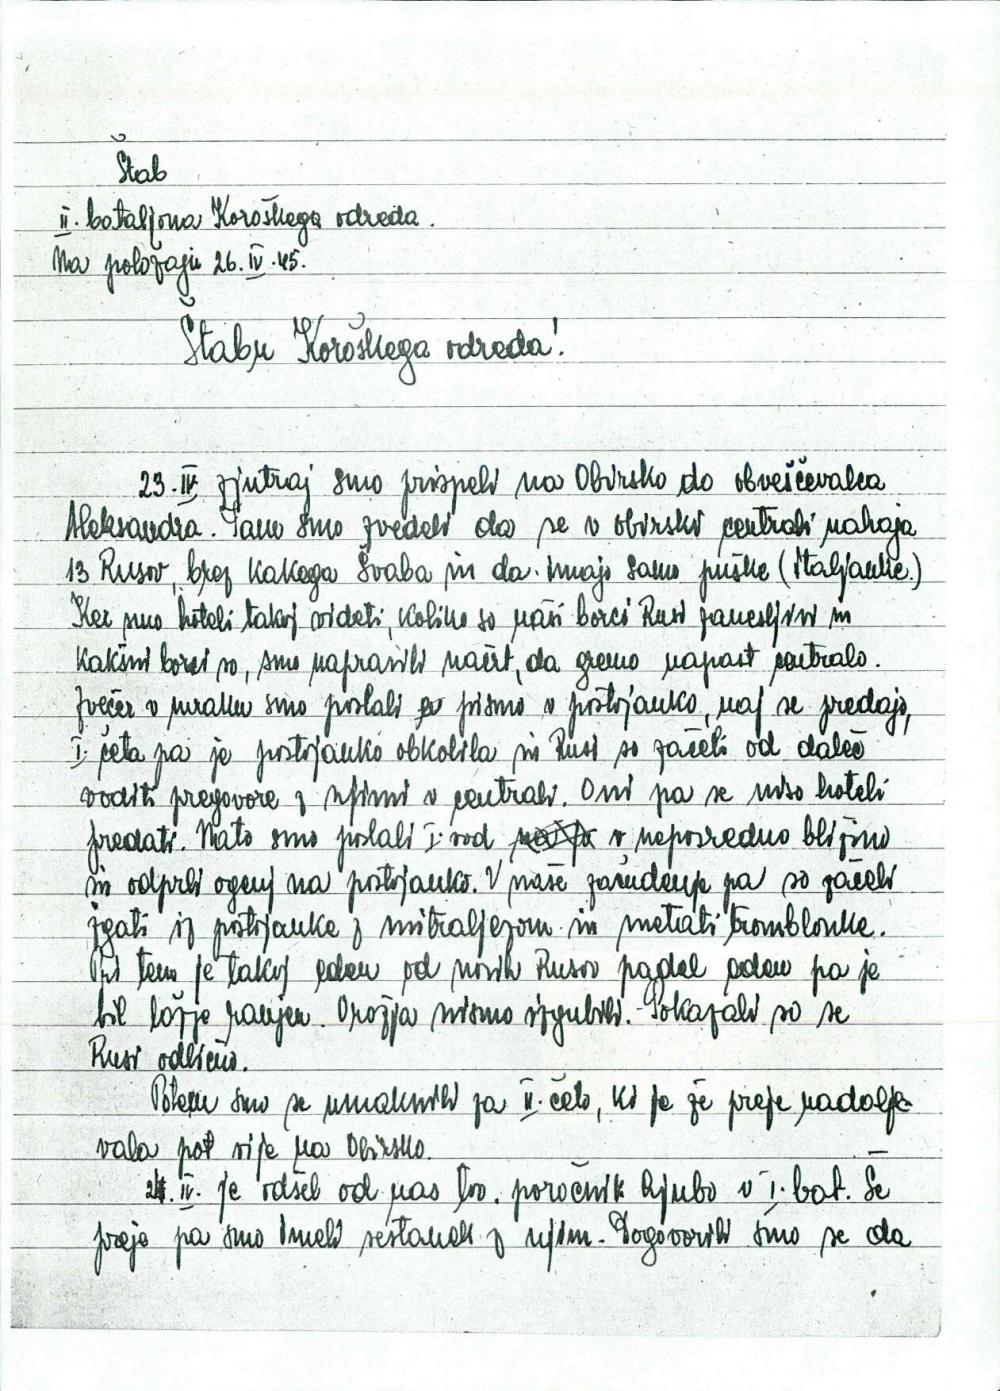 Štab
II. bataljona Koroškega odreda.
Na položaju 26. IV. 45.
Štabu Koroškega odreda!
23. IV. zjutraj smo prispeli na Obirsko do obveščevalca
Aleksandra. Tam smo zvedeli da se v obirski centrali nahaja
13 Rusov, brez kakega Švaba in da imajo samo puške (italjanke.)
Ker smo hoteli takoj videti, koliko so naši borci Rusi zanesljivi in
kakšni borci so, smo napravili načrt, da gremo napast centralo.
Zvečer v mraku smo poslali pismo v postojanko, naj se predajo,
I. četa pa je postojanko obkolila in Rusi so začeli od daleč
voditi pregovore z njimi v centrali. Oni pa se niso hoteli
predati. Nato smo poslali I. vod v neposredno bližino
in odprli ogenj na postojanko. V naše začudenje pa so začeli
žgati iz postojanke z mitraljezom in metati tromblonke.
Pri tem je takoj eden od novih Rusov padel eden pa je
bil ložje ranjen. Orožja nismo izgubili. Pokazali so se
Rusi odlično.
Potem smo se umaknili za II. četo, ki je že preje nadolje-
vala pot više na Obirsko.
24. IV. je odšel od nas tov. poročnik Ljubo v I. bat. Še
preje pa smo imeli sestanek z njim. Dogovorili smo se da